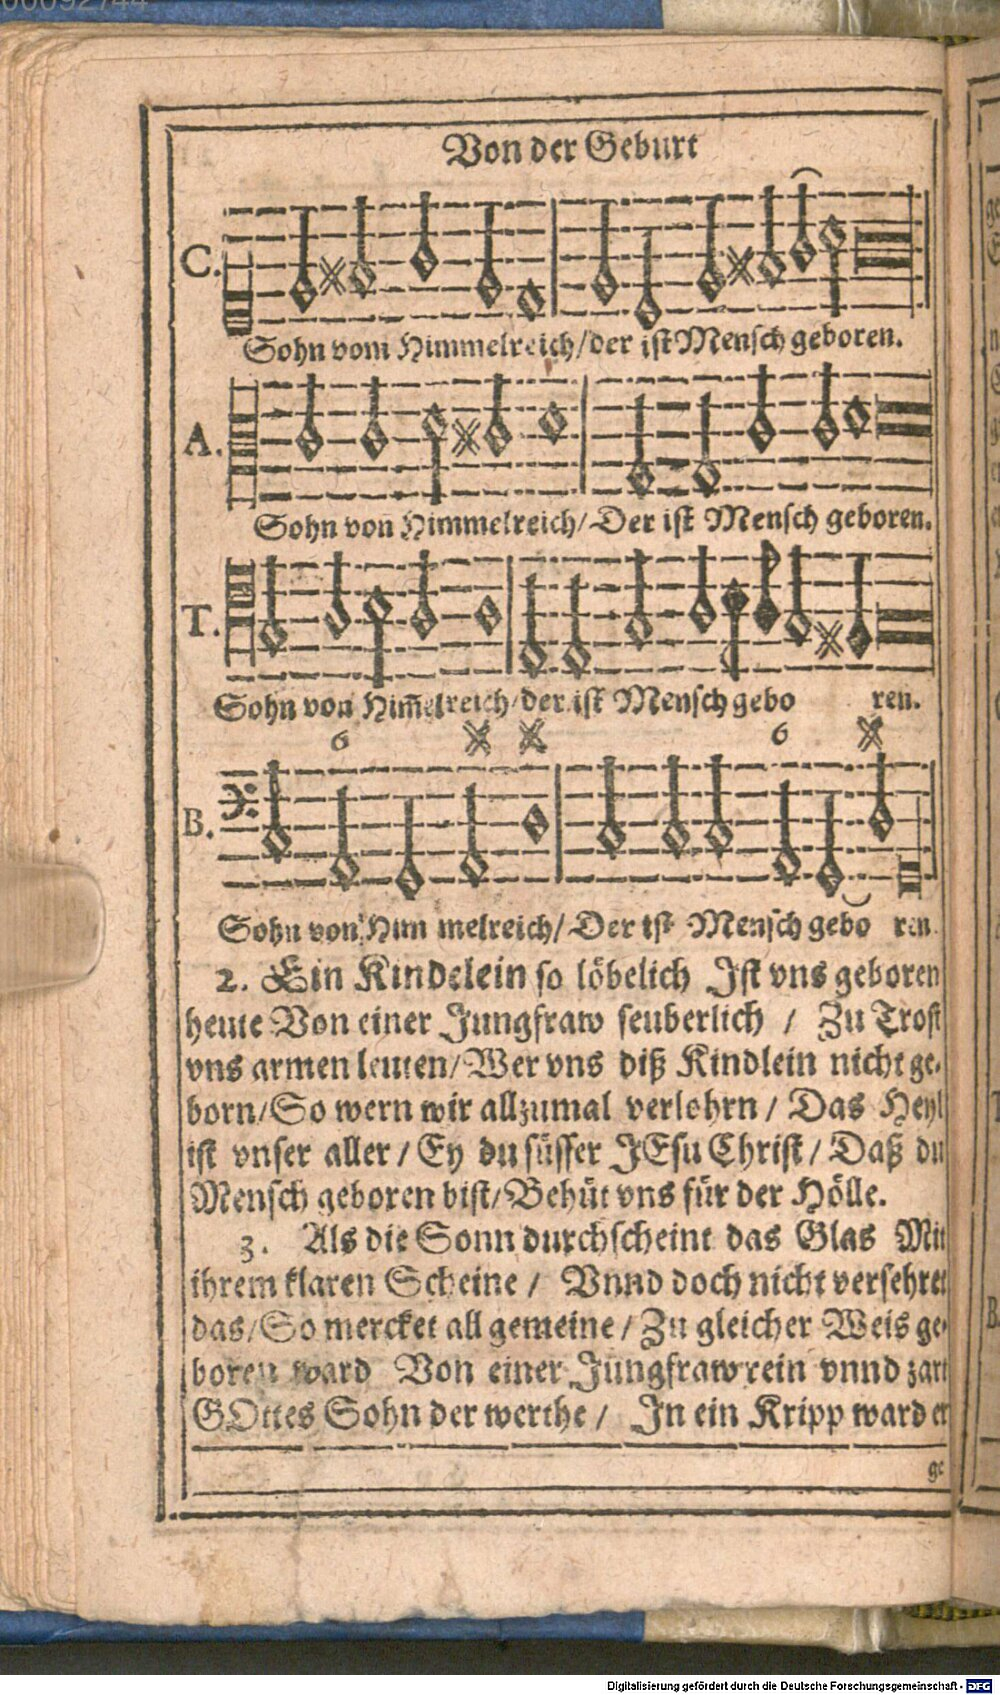 Von der Geburt
C.
Sohn vom Himmelreich/der ist Mensch geboren.
A.
Sohn von Himmelreich/Der ist Mensch geboren.
T.
Sohn von Him̃elreich/der ist Mensch gebo ren.
6 6
B.
Sohn von Him melreich/Der ist Mensch gebo ren.
2. Ein Kindelein so löbelich Ist vns geboren
heute Von einer Jungfraw seuberlich / Zu Trost
vns armen leuten/Wer vns diß Kindlein nicht ge-
born/So wern wir allzumal verlohrn / Das Heyl
ist vnser aller / Ey du süsser JEsu Christ / Daß du
Mensch geboren bist/Behüt vns für der Hölle.
3. Als die Sonn durchscheint das Glas Mit
ihrem klaren Scheine / Vnnd doch nicht versehret
das/So mercket all gemeine / Zu gleicher Weis ge-
boren ward Von einer Jungfraw rein vnnd zart
GOttes Sohn der werthe / In ein Kripp ward er
ge
Digitalisierung gefördert durch die Deutsche Forschungsgemeinschaft - DFG